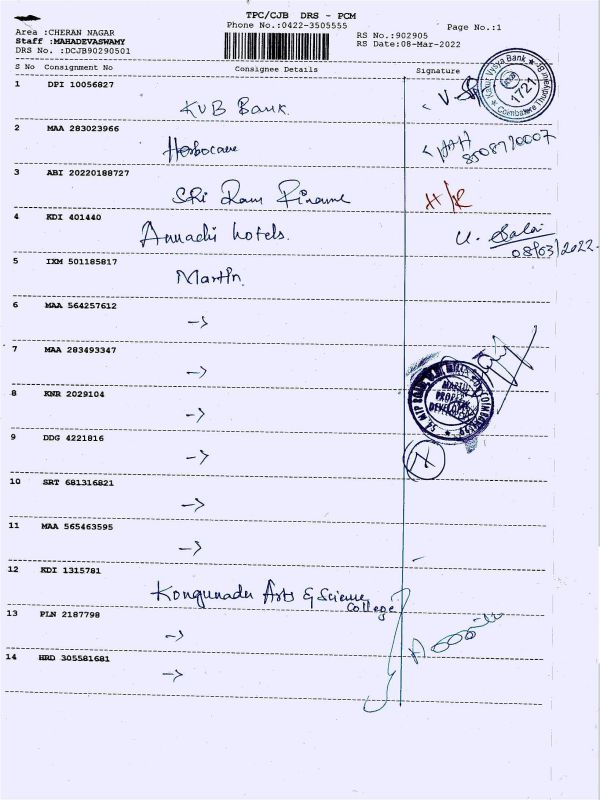 TPC/CJB DRS - PCM
Phone No.:0422-3505555
Page No.:1
Area :CHERAN NAGAR
Staff :MAHADEVASWAMY
DRS No. :DCJB90290501
RS No.:902905
RS Date:08-Mar-2022
S No Consignment No Consignee Details Signature
1 DPI 10056827
KVB Bank.
2 MAA 283023966
Herbocare
3 ABI 20220188727
SRi Ram Finance
H/R
4 KDI 401440
Annachi hotels.
08/03/2022.
5 IXM 501185817
Martin.
6 MAA 564257612
->
7 MAA 283493347
->
8 KNR 2029104
->
9 DDG 4221816
->
7
10 SRT 681316821
->
11 MAA 565463595
->
12 KDI 1315781
Kongunadu Arts & Science
College
13 PLN 2187798
->
14 HRD 305581681
->
Karur Vysya Bank
1721
Coimbatore
MARTIN
PROPERTY
DEVELOPERS